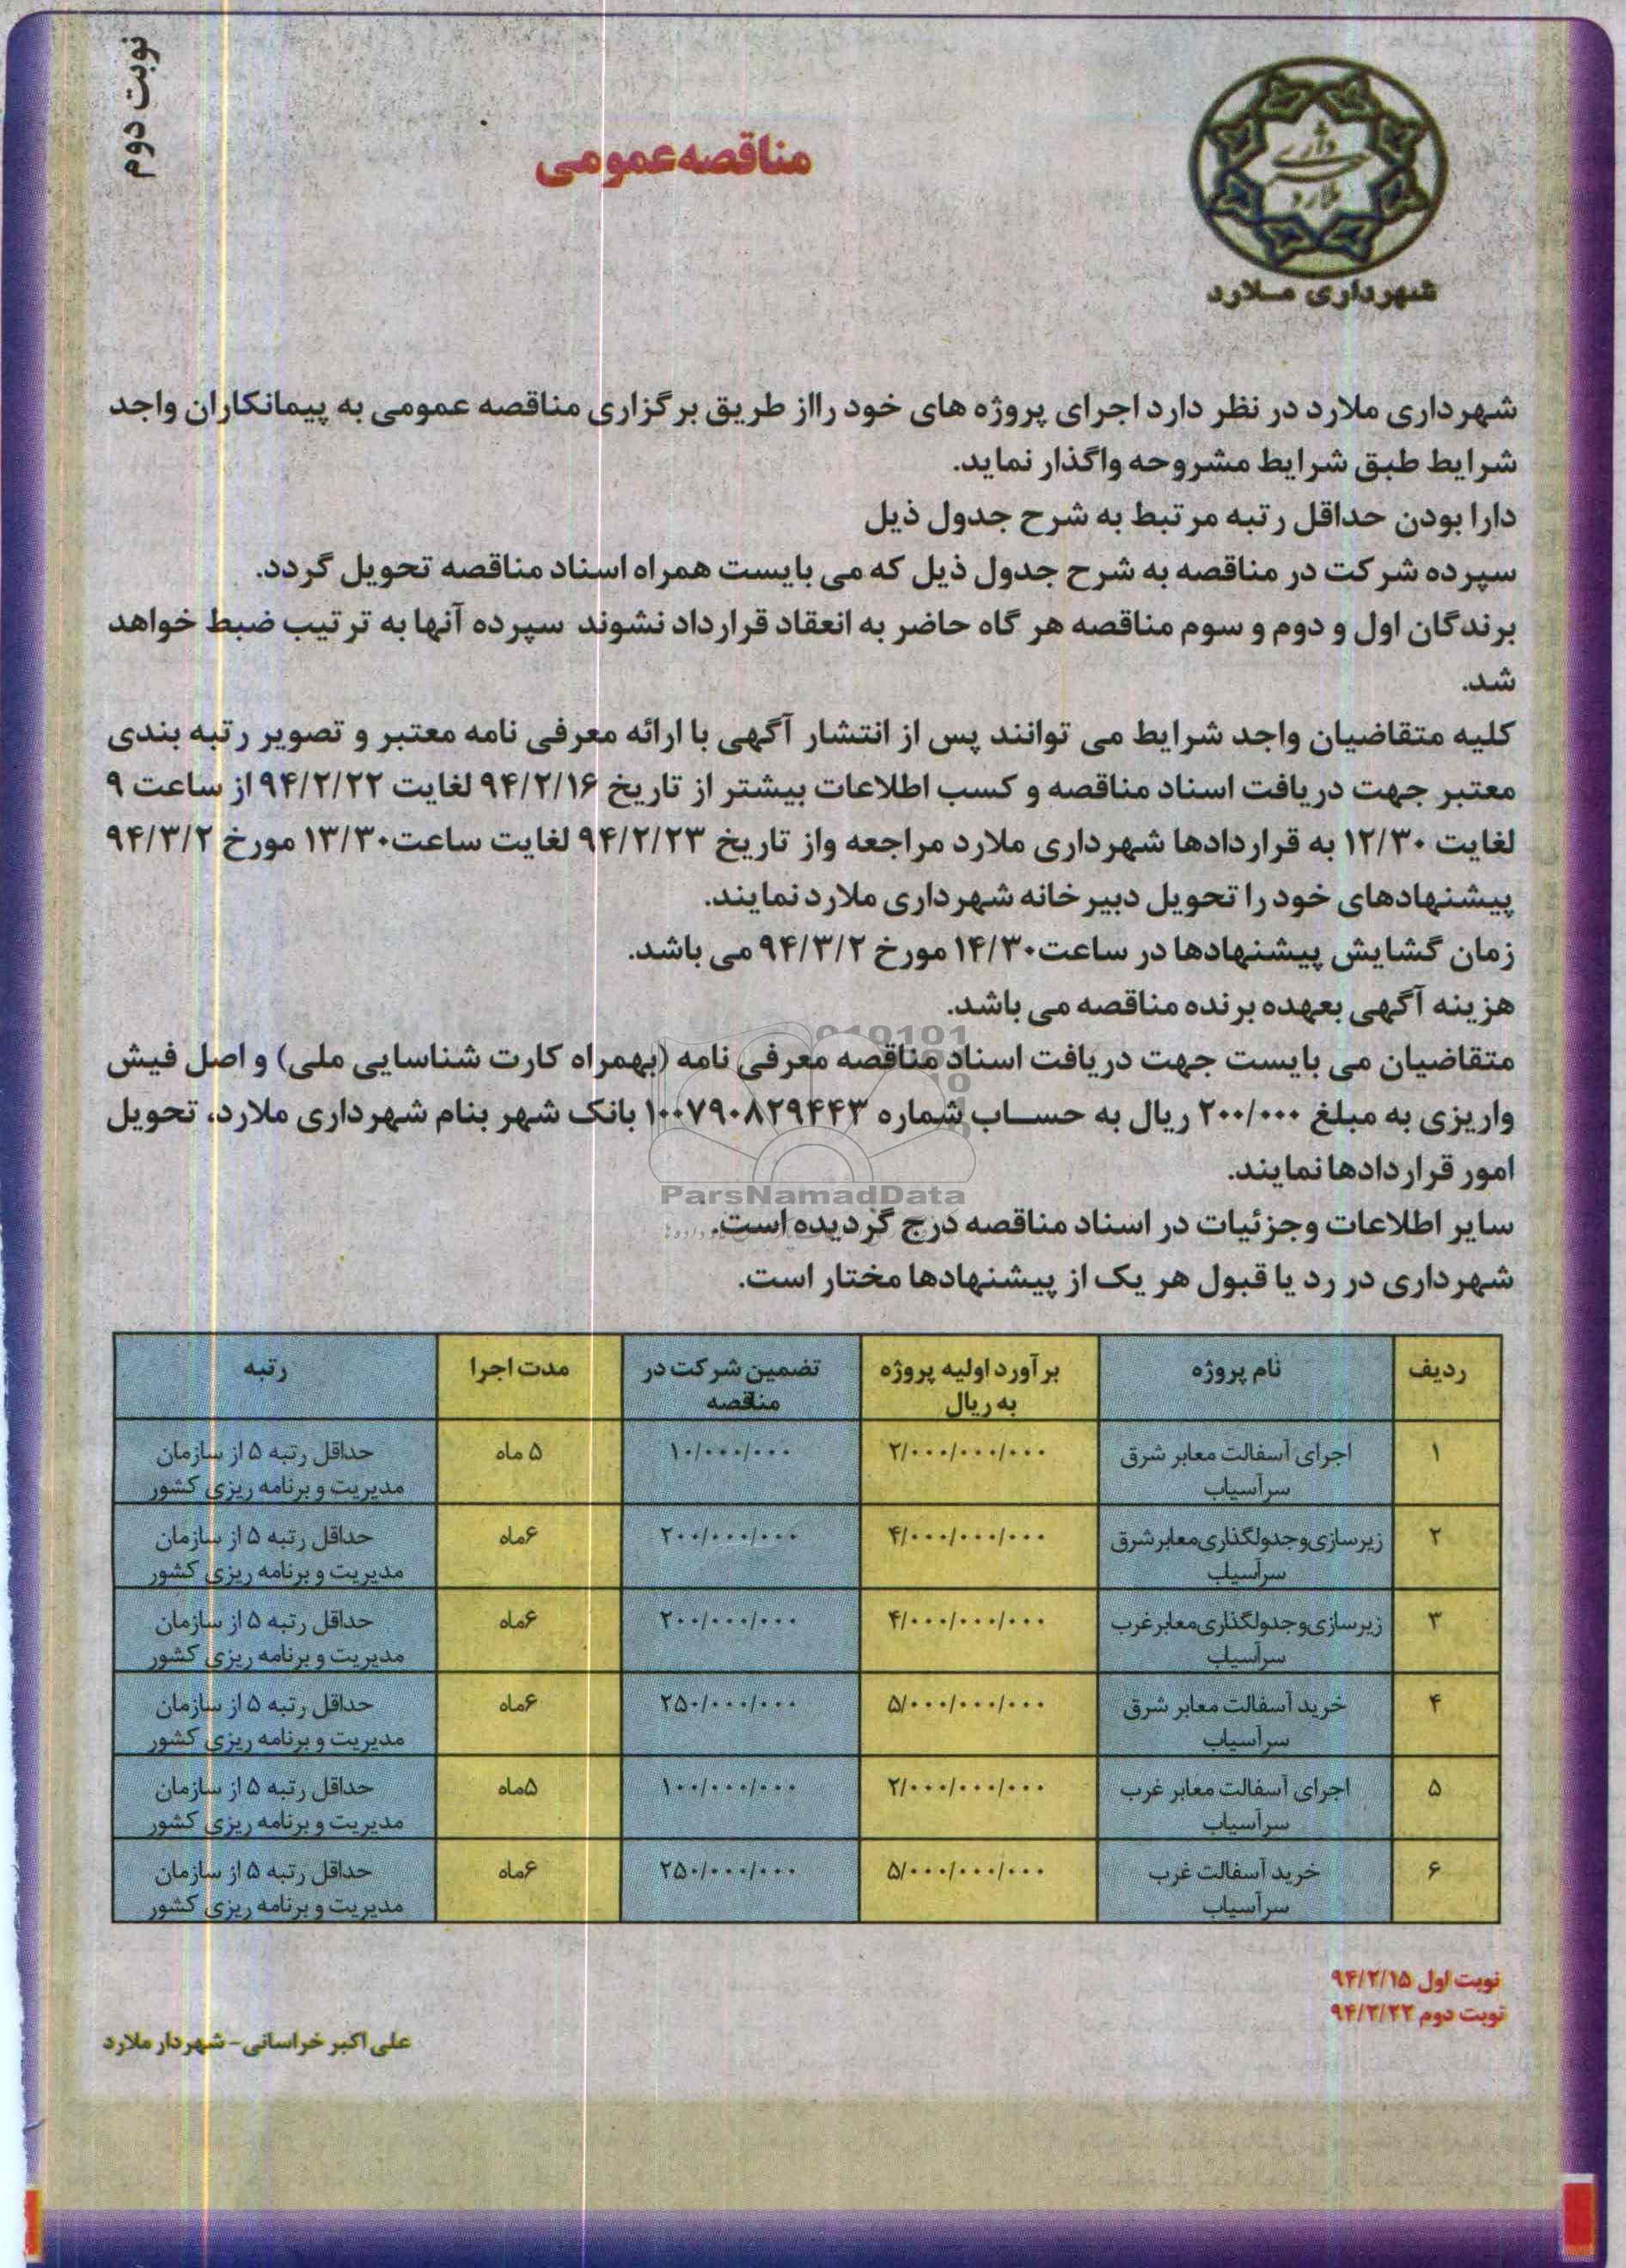 نوبت دوم
شهرداری ملارد
شهرداری مـلارد
مناقصه عمومی
شهرداری ملارد در نظر دارد اجرای پروژه های خود رااز طریق برگزاری مناقصه عمومی به پیمانکاران واجد
شرایط طبق شرایط مشروحه واگذار نماید.
دارا بودن حداقل رتبه مرتبط به شرح جدول ذیل
سپرده شرکت در مناقصه به شرح جدول ذیل که می بایست همراه اسناد مناقصه تحویل گردد.
برندگان اول و دوم و سوم مناقصه هر گاه حاضر به انعقاد قرارداد نشوند سپرده آنها به ترتیب ضبط خواهد
شد.
کلیه متقاضیان واجد شرایط می توانند پس از انتشار آگهی با ارائه معرفی نامه معتبر و تصویر رتبه بندی
معتبر جهت دریافت اسناد مناقصه و کسب اطلاعات بیشتر از تاریخ ۹۴/۲/۱۶ لغایت ۹۴/۲/۲۲ از ساعت ۹
لغایت ۱۲/۳۰ به قراردادها شهرداری ملارد مراجعه واز تاریخ ۹۴/۲/۲۳ لغایت ساعت۱۳/۳۰ مورخ ۹۴/۳/۲
پیشنهادهای خود را تحویل دبیرخانه شهرداری ملارد نمایند.
زمان گشایش پیشنهادها در ساعت۱۴/۳۰ مورخ ۹۴/۳/۲ می باشد.
هزینه آگهی بعهده برنده مناقصه می باشد.
متقاضیان می بایست جهت دریافت اسناد مناقصه معرفی نامه (بهمراه کارت شناسایی ملی) و اصل فیش
واریزی به مبلغ ۲۰۰/۰۰۰ ریال به حساب شماره ۱۰۰۷۹۰۸۲۹۴۴۳ بانک شهر بنام شهرداری ملارد، تحویل
امور قراردادها نمایند.
ParsNamadData
سایر اطلاعات وجزئیات در اسناد مناقصه درج گردیده است.
شهرداری در رد یا قبول هر یک از پیشنهادها مختار است.
ردیف نام پروژه برآورد اولیه پروژه به ریال تضمین شرکت در مناقصه مدت اجرا رتبه
۱ اجرای آسفالت معابر شرق سرآسیاب ۲/۰۰۰/۰۰۰/۰۰۰ ۱۰/۰۰۰/۰۰۰ ۵ ماه حداقل رتبه ۵ از سازمان مدیریت و برنامه ریزی کشور
۲ زیرسازی‌وجدولگذاری‌معابرشرق سرآسیاب ۴/۰۰۰/۰۰۰/۰۰۰ ۲۰۰/۰۰۰/۰۰۰ ۶ماه حداقل رتبه ۵ از سازمان مدیریت و برنامه ریزی کشور
۳ زیرسازی‌وجدولگذاری‌معابرغرب سرآسیاب ۴/۰۰۰/۰۰۰/۰۰۰ ۲۰۰/۰۰۰/۰۰۰ ۶ماه حداقل رتبه ۵ از سازمان مدیریت و برنامه ریزی کشور
۴ خرید آسفالت معابر شرق سرآسیاب ۵/۰۰۰/۰۰۰/۰۰۰ ۲۵۰/۰۰۰/۰۰۰ ۶ماه حداقل رتبه ۵ از سازمان مدیریت و برنامه ریزی کشور
۵ اجرای آسفالت معابر غرب سرآسیاب ۲/۰۰۰/۰۰۰/۰۰۰ ۱۰۰/۰۰۰/۰۰۰ ۵ماه حداقل رتبه ۵ از سازمان مدیریت و برنامه ریزی کشور
۶ خرید آسفالت غرب سرآسیاب ۵/۰۰۰/۰۰۰/۰۰۰ ۲۵۰/۰۰۰/۰۰۰ ۶ماه حداقل رتبه ۵ از سازمان مدیریت و برنامه ریزی کشور
نوبت اول ۹۴/۲/۱۵
نوبت دوم ۹۴/۲/۲۲
علی اکبر خراسانی- شهردار ملارد